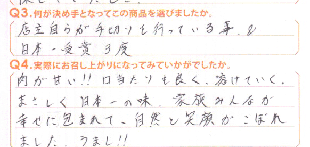 Q3.何が決め手となってこの商品を選びましたか。
店主自らが手切りを行っている事。
日本一受賞 3度
Q4.実際にお召し上がりになってみていかがでしたか。
肉が甘い!! 口当たりも良く、溶けていく。
まさしく日本一の味。家族みんなが
幸せに包まれて、自然と笑顔がこぼれ
ました。うまし!!